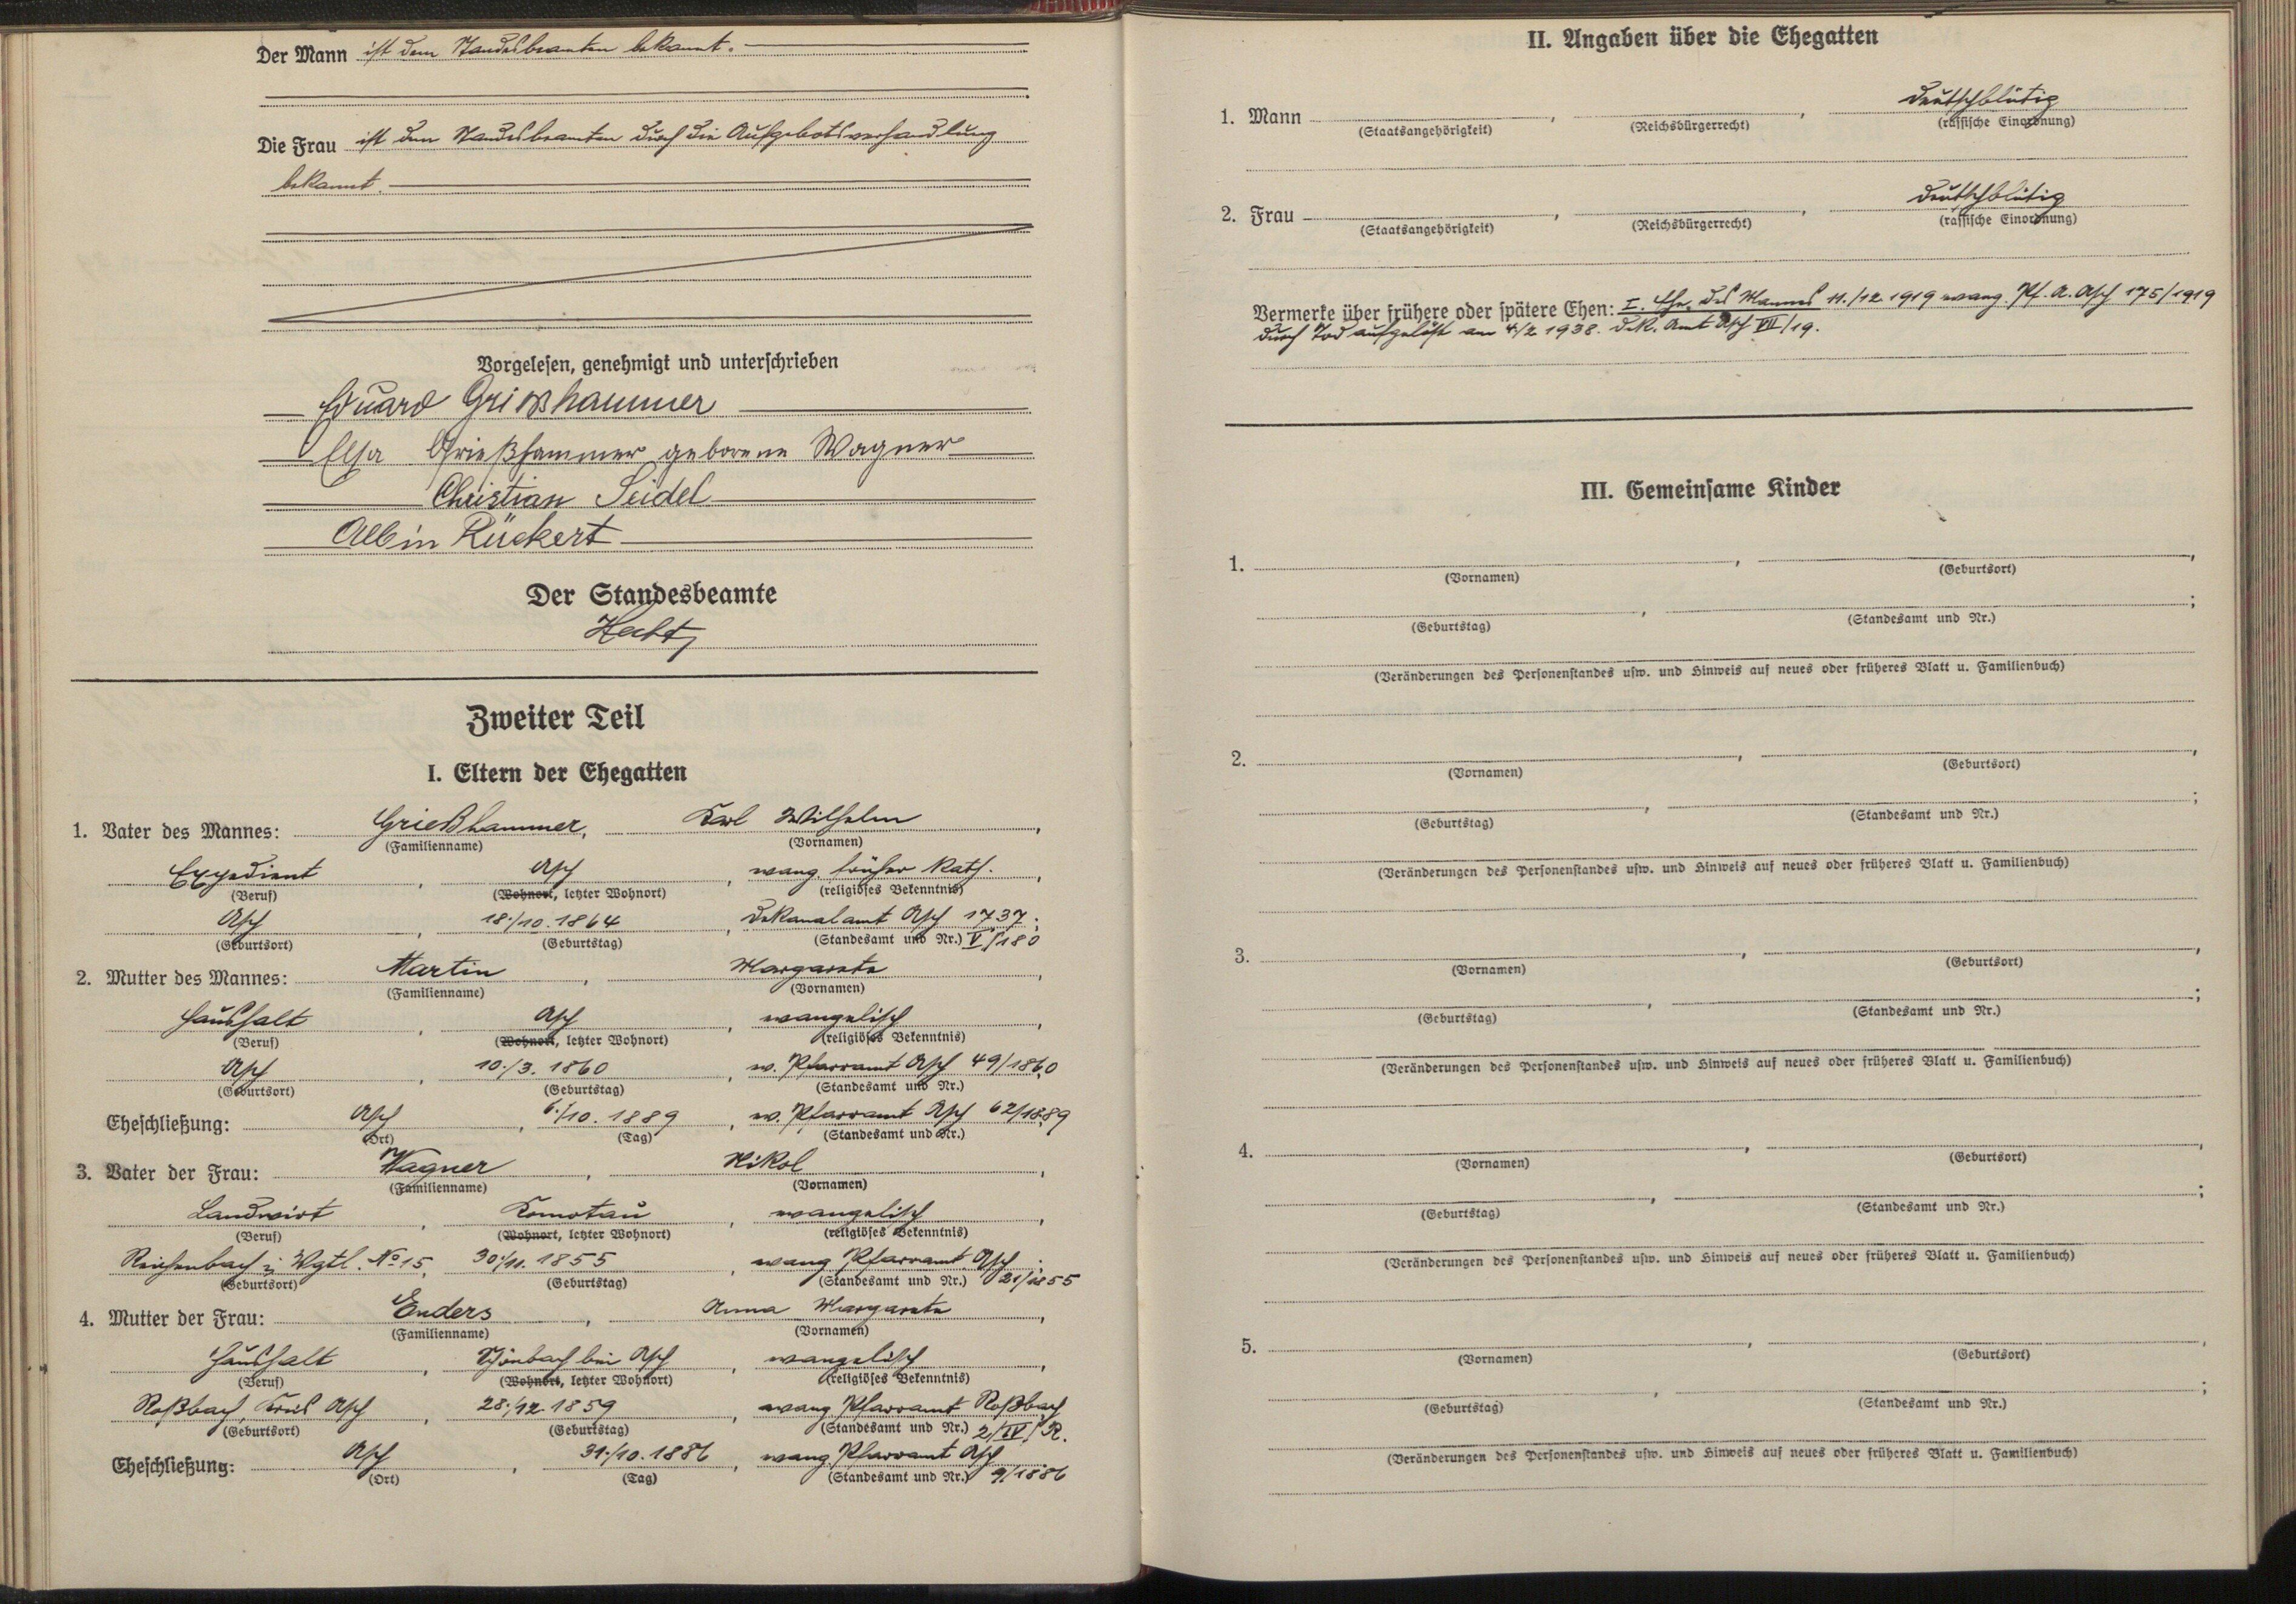 Der Mann ist dem Standesbeamten bekannt.
Die Frau ist dem Standesbeamten durch die Aufgebotsverhandlung
bekannt.
Vorgelesen, genehmigt und unterschrieben
Eduard Grießhammer
Elsa Grießhammer geborene Wagner
Christian Seidel
Albin Rückert
Der Standesbeamte
Zweiter Teil
I. Eltern der Ehegatten
1. Vater des Mannes: Grießhammer, Karl Wilhelm,
(Familienname) (Vornamen)
Expedient, Asch, evang. früher kath.,
(Beruf) (Wohnort, letzter Wohnort) (religiöses Bekenntnis)
Asch, 18./10. 1864, Dekanalamt Asch 1737;
(Geburtsort) (Geburtstag) (Standesamt und Nr.) V/180
2. Mutter des Mannes: Martin, Margareta,
(Familienname) (Vornamen)
Haushalt, Asch, evangelisch,
(Beruf) (Wohnort, letzter Wohnort) (religiöses Bekenntnis)
Asch, 10./3. 1860, ev. Pfarramt Asch 49/1860
(Geburtsort) (Geburtstag) (Standesamt und Nr.)
Eheschließung: Asch, 6./10. 1889, ev. Pfarramt Asch 62/1889
(Ort) (Tag) (Standesamt und Nr.)
3. Vater der Frau: Wagner, Nikol,
(Familienname) (Vornamen)
Landwirt, Komotau, evangelisch,
(Beruf) (Wohnort, letzter Wohnort) (religiöses Bekenntnis)
Reichenbach i. Vgtl. No 15, 30./11. 1855, evang. Pfarramt Asch;
(Geburtsort) (Geburtstag) (Standesamt und Nr.) 21/1855
4. Mutter der Frau: Enders, Anna Margareta,
(Familienname) (Vornamen)
Haushalt, Schönbach bei Asch, evangelisch,
(Beruf) (Wohnort, letzter Wohnort) (religiöses Bekenntnis)
Roßbach, Kreis Asch, 28./12. 1859, evang. Pfarramt Roßbach
(Geburtsort) (Geburtstag) (Standesamt und Nr.) 2/IV/R.
Eheschließung: Asch, 31./10. 1886, evang. Pfarramt Asch
(Ort) (Tag) (Standesamt und Nr.) 9/1886
II. Angaben über die Ehegatten
1. Mann , , deutschblütig
(Staatsangehörigkeit) (Reichsbürgerrecht) (rassische Einordnung)
2. Frau , , deutschblütig
(Staatsangehörigkeit) (Reichsbürgerrecht) (rassische Einordnung)
Vermerke über frühere oder spätere Ehen: I. Ehe des Mannes 11./12. 1919 evang. Pf. A. Asch 175/1919
durch Tod aufgelöst am 4/2 1938. Dek. Amt Asch VII/19.
III. Gemeinsame Kinder
1. , ,
(Vornamen) (Geburtsort)
, ;
(Geburtstag) (Standesamt und Nr.)
(Veränderungen des Personenstandes usw. und Hinweis auf neues oder früheres Blatt u. Familienbuch)
2. , ,
(Vornamen) (Geburtsort)
;
(Geburtstag) (Standesamt und Nr.)
(Veränderungen des Personenstandes usw. und Hinweis auf neues oder früheres Blatt u. Familienbuch)
3. , ,
(Vornamen) (Geburtsort)
, ;
(Geburtstag) (Standesamt und Nr.)
(Veränderungen des Personenstandes usw. und Hinweis auf neues oder früheres Blatt u. Familienbuch)
4. , ,
(Vornamen) (Geburtsort)
, ;
(Geburtstag) (Standesamt und Nr.)
(Veränderungen des Personenstandes usw. und Hinweis auf neues oder früheres Blatt u. Familienbuch)
5. , ,
(Vornamen) (Geburtsort)
, ;
(Geburtstag) (Standesamt und Nr.)
(Veränderungen des Personenstandes usw. und Hinweis auf neues oder früheres Blatt u. Familienbuch)